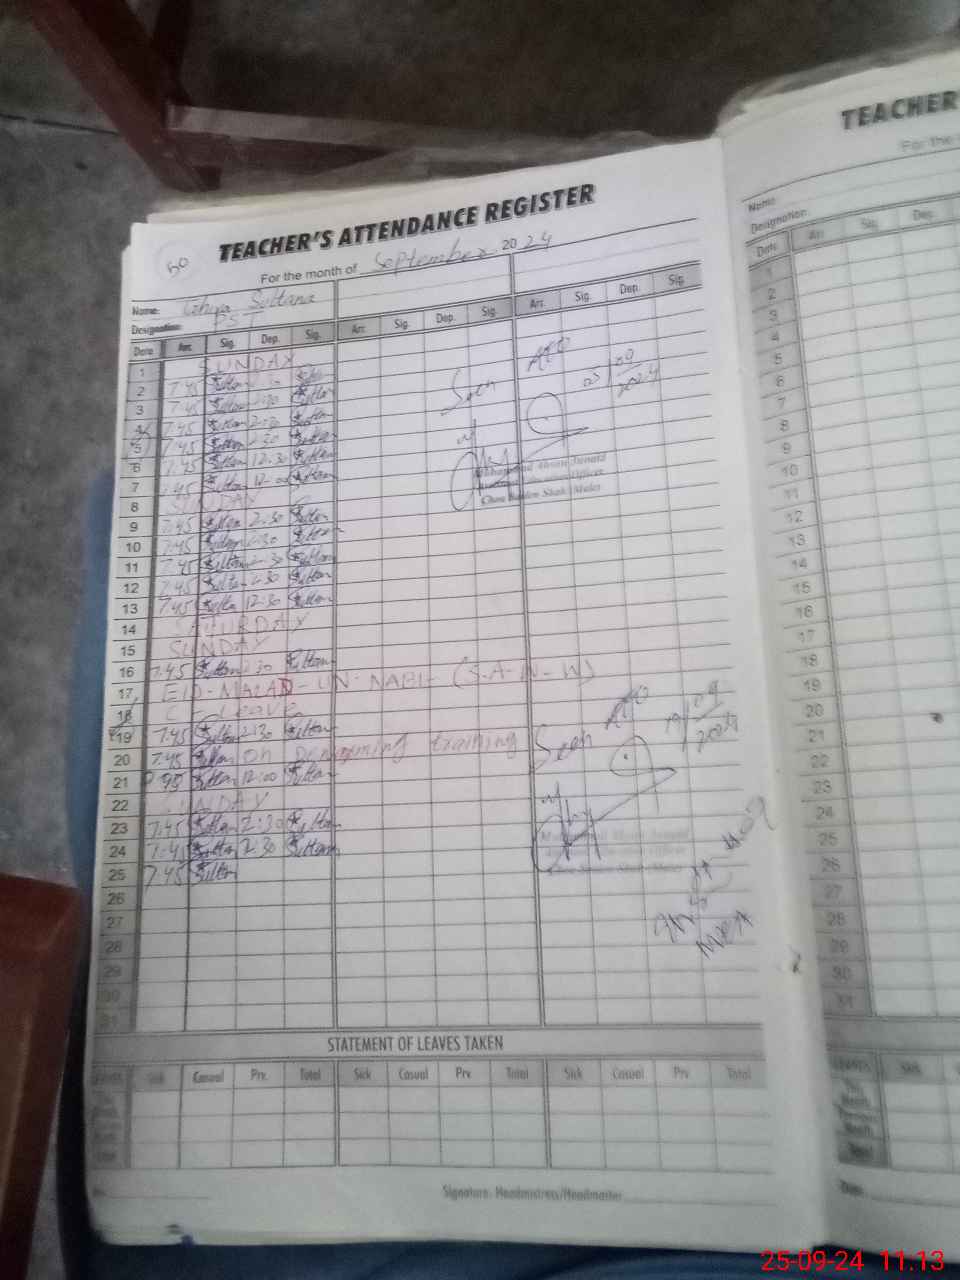 TEACHER'S ATTENDANCE REGISTER
50
For the month of September 2024
Name: Sultana
Designation: PST
Date Arr. Sig. Dep. Sig. Arr. Sig. Dep. Sig. Arr. Sig. Dep. Sig.
1 SUNDAY
2 7:45 Sultan 2:30 Sultan
3 7:45 Sultan 2:30 Sultan
4 7:45 Sultan 2:30 Sultan
5 7:45 Sultan 2:30 Sultan
6 7:45 Sultan 12:30 Sultan
7 7:45 Sultan 12:00 Sultan
8 SUNDAY
9 7:45 Sultan 2:30 Sultan
10 7:45 Sultan 2:30 Sultan
11 7:45 Sultan 2:30 Sultan
12 7:45 Sultan 2:30 Sultan
13 7:45 Sultan 12:30 Sultan
14 SATURDAY
15 SUNDAY
16 7:45 Sultan 2:30 Sultan
17 EID-MALAD-UN-NABI-(S-A-W-W)
18 C-Leave
19 7:45 Sultan 2:30 Sultan
20 7:45 Sultan On training
21 Sultan 12:00 Sultan
22 SUNDAY
23 7:45 Sultan 2:30 Sultan
24 7:45 Sultan 2:30 Sultan
25 7:45 Sultan
26
27
28
29
30
31
Seen AEO
05/09/2024
Muhammad Ahsan Junaid
Officer
Choa Saiden Shah (Male)
Seen AEO
19/09/2024
Muhammad Ahsan Junaid
Officer
Choa Saiden Shah (Male)
STATEMENT OF LEAVES TAKEN
Sick Casual Prv. Total Sick Casual Prv. Total Sick Casual Prv. Total
Signature. Headmistress/Headmaster
TEACHER
For the
Name:
Designation:
Date Arr. Sig. Dep.
1
2
3
4
5
6
7
8
9
10
11
12
13
14
15
16
17
18
19
20
21
22
23
24
25
26
27
28
29
30
31
Sick
25-09-24 11:13